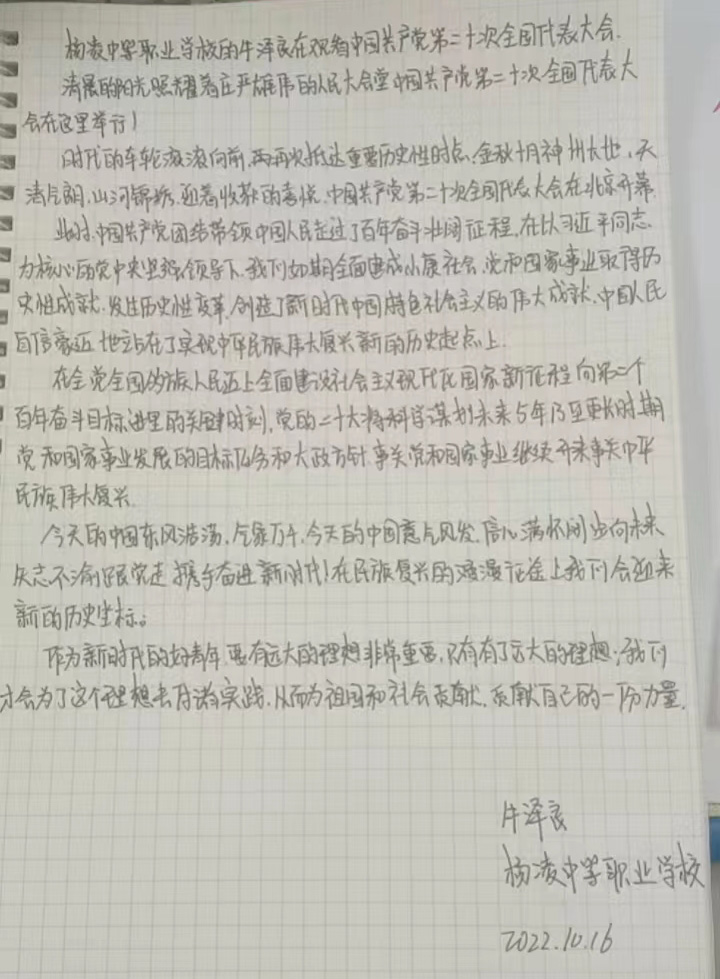 杨凌中等职业学校的牛泽良在观看中国共产党第二十次全国代表大会.
清晨的阳光照耀着庄严雄伟的人民大会堂中国共产党第二十次全国代表大
会在这里举行！
时代的车轮滚滚向前,再次抵达重要历史性时点.金秋十月神州大地,天
清气朗,山河锦绣,迎着收获的喜悦.中国共产党第二十次全国代表大会在北京开幕
此时.中国共产党团结带领中国人民走过了百年奋斗壮阔征程,在以习近平同志
为核心的党中央坚强领导下,我们如期全面建成小康社会,党和国家事业取得历
史性成就.发生历史性变革,创造了新时代中国特色社会主义的伟大成就.中国人民
自信豪迈地站在了实现中华民族伟大复兴新的历史起点上.
在全党全国各族人民迈上全面建设社会主义现代化国家新征程向第二个
百年奋斗目标进军的关键时刻,党的二十大将科学谋划未来5年乃至更长时期
党和国家事业发展的目标任务和大政方针.事关党和国家事业继续开来事关中华
民族伟大复兴.
今天的中国东风浩荡,气象万千,今天的中国意气风发,信心满怀阔步向未来
矢志不渝跟党走携手奋进新时代!在民族复兴的漫漫征途上我们会迎来
新的历史坐标。
作为新时代的好青年.要有远大的理想非常重要,只有有了远大的理想;我们
才会为了这个理想去拼搏实践.从而为祖国和社会贡献.贡献自己的一份力量.
牛泽良
杨凌中等职业学校
2022.10.16